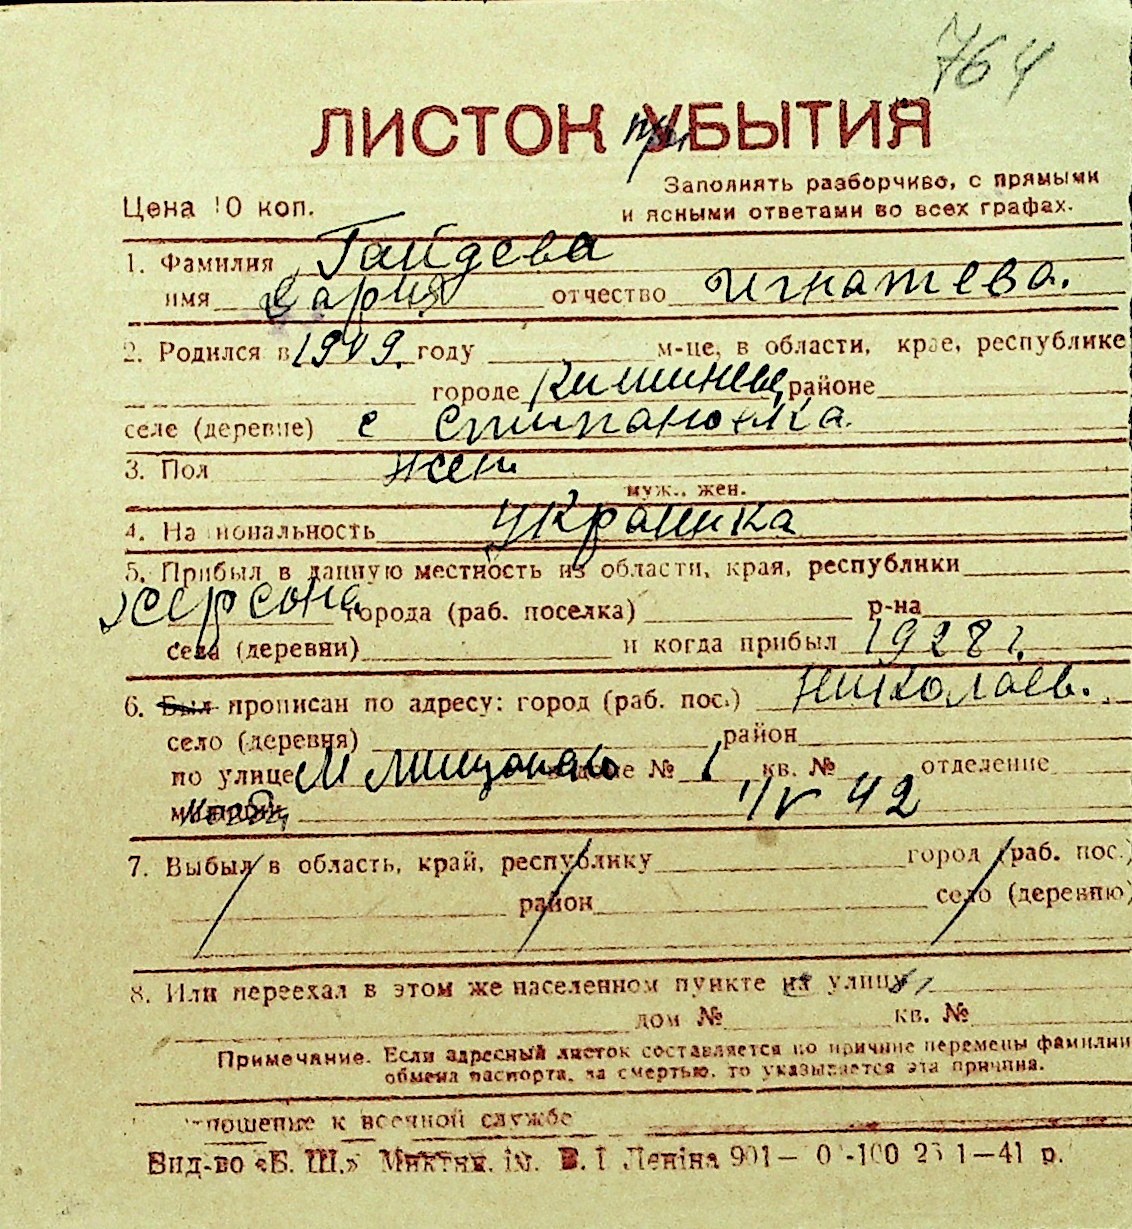 764
ЛИСТОК при УБЫТИЯ
Заполнять разборчиво, с прямыми
Цена 10 коп. и ясными ответами во всех графах.
1. Фамилия Гайдева
имя Дария отчество Игнатева.
2. Родился в 1909. году м-це, в области, крае, республике
городе районе
селе (деревне) с Степановка.
3. Пол жен
муж., жен.
4. Национальность украинка
5. Прибыл в данную местность из области, края, республики
Херсона города (раб. поселка) р-на
села (деревни) и когда прибыл 1928 г.
6. Был прописан по адресу: город (раб. пос.) Николаев.
село (деревня) район
по улице М № 1 кв. № отделение
42
7. Выбыл в область, край, республику город (раб. пос.)
район село (деревню)
8. Или переехал в этом же населенном пункте на улицу
дом № кв. №
Примечание. Если адресный листок составляется по причине перемены фамилии
обмена паспорта, за смертью, то указывается эта причина.
Отношение к военной службе
Вид-во «Б. Ш.» Миктик. ім. В. І Леніна 901— 0 -100 25 1—41 р.